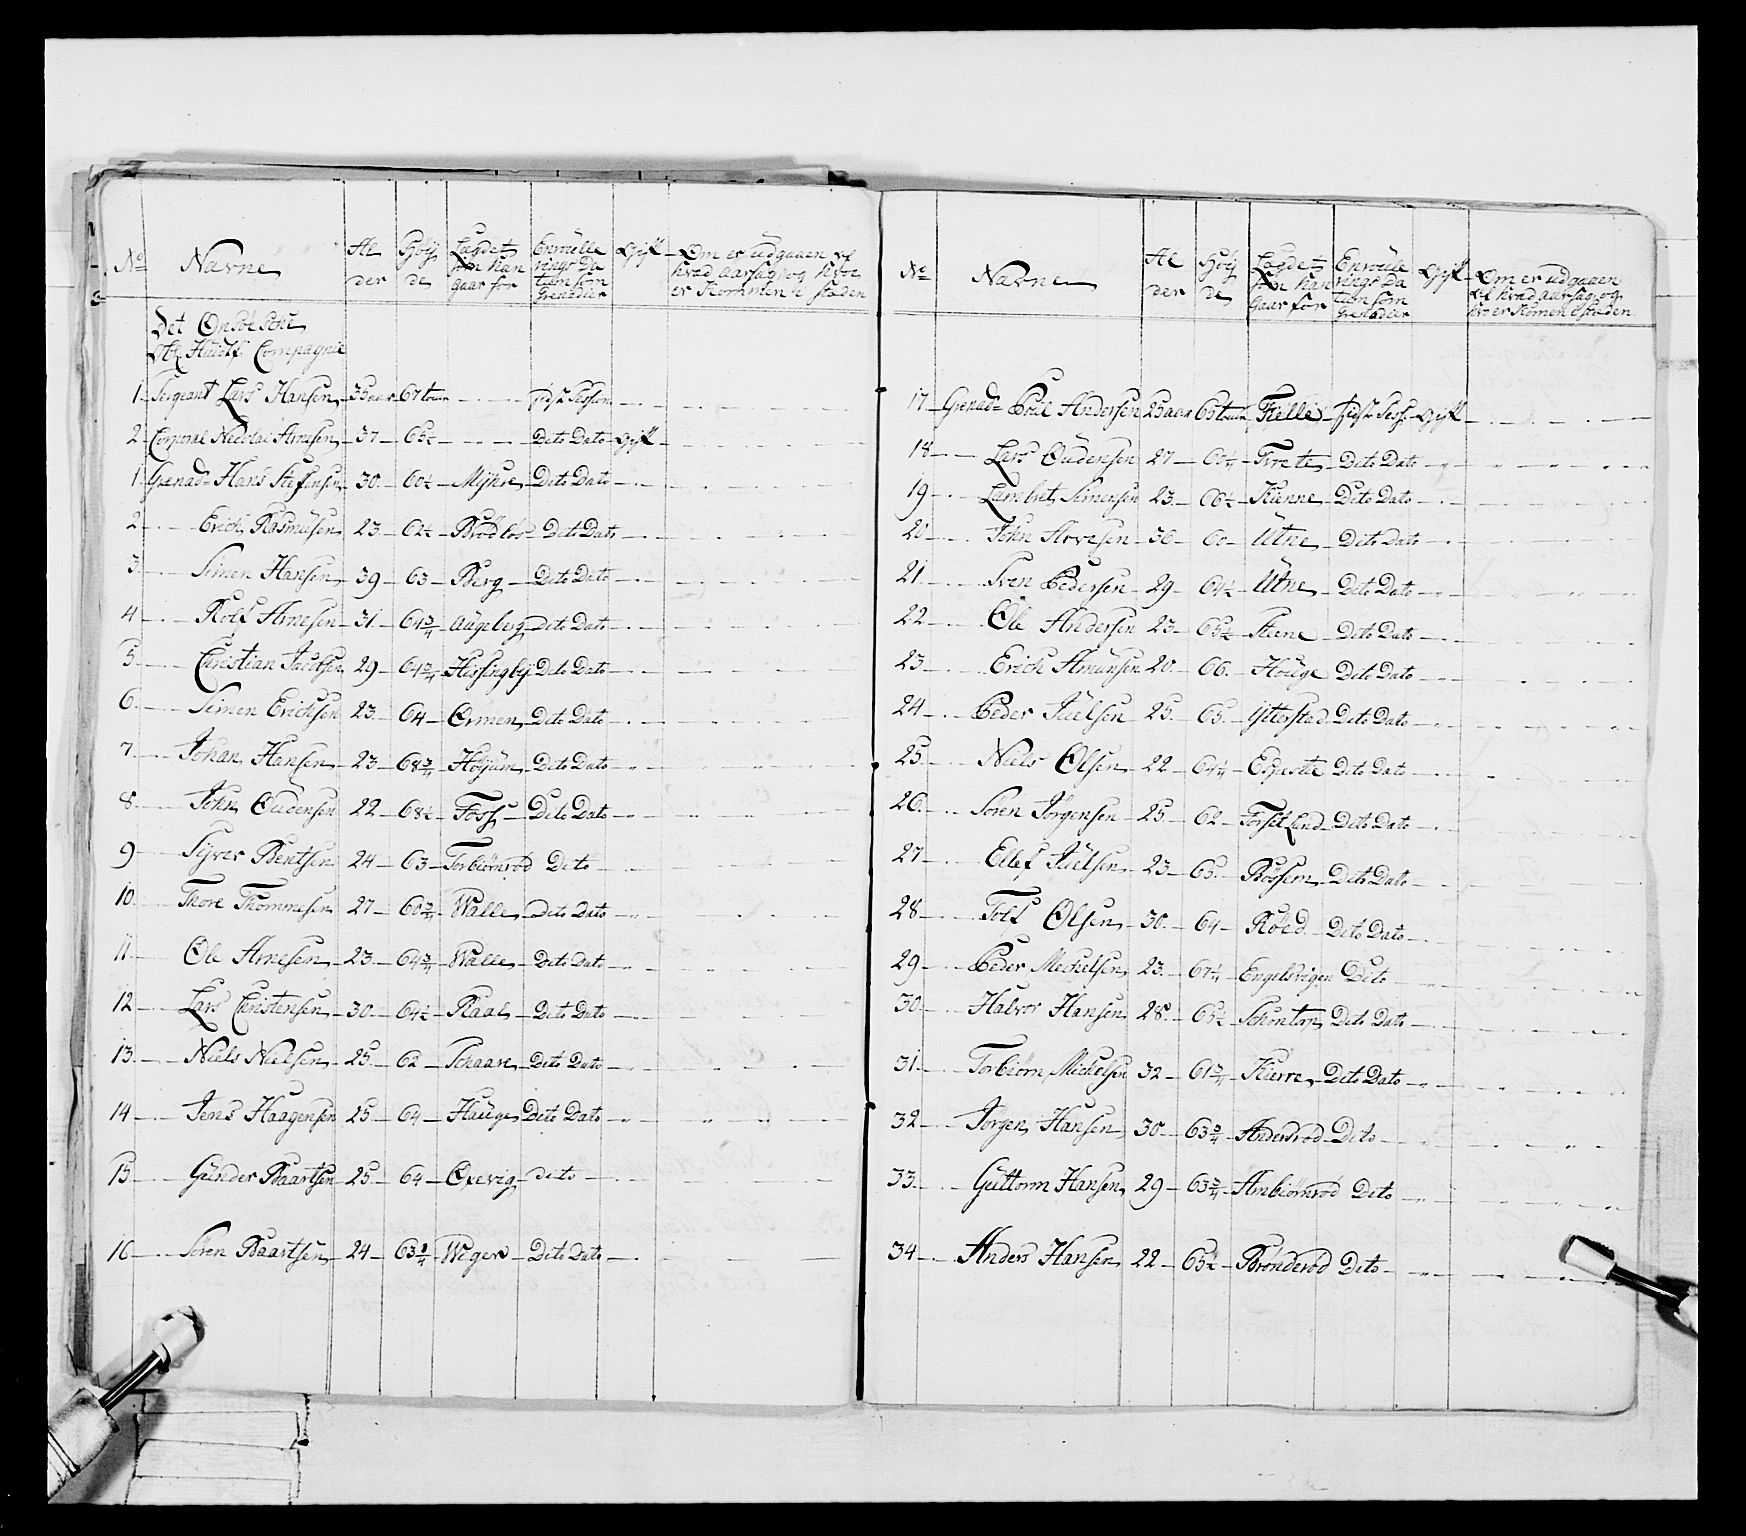 No Navne Al der Høy de Lægdet som han gaar for Enroulle rings Da tum som Grenadier Gift Om er udgaaen af hvad aarsag og hvo er Kommen i staden
Det Onsøeske
Compagnie
1 Sergeant Lars Hansen 35 aar 67 tom sidst Session
2 Corporal Nicolai Arnesen 37 65½ Dito Dato Gift
1 Grenad: Hans Stefensen 30 60½ Myhre Dito Dato
2 Erich Rasmusen 23 62½ Brodløs Dito Dato
3 Simen Hansen 39 63 Berg Dito Dato
4 Rolf Arnesen 31 64¾ Augeberg Dito Dato
5 Christian Jacobsen 29 64¾ Hissingby Dito Dato
6 Simen Erichsen 23 64 Ormen Dito Dato
7 Johan Hansen 23 68¾ Høyum Dito Dato
8 John Oudensen 22 68½ Foss Dito Dato
9 Syver Bentsen 24 63 Torbiørnrød Dito
10 Thore Thommesen 27 60¾ Walle Dito Dato
11 Ole Arnesen 23 64¾ Walle Dito Dato
12 Lars Christensen 30 64½ Raae Dito Dato
13 Niels Nielsen 25 62 Schaare Dito Dato
14 Jens Haagensen 25 64 Hauge Dito Dato
15 Gunder Baartsen 25 64 Oxevig dito
16 Søren Baartsen 24 63¾ Wiger Dito Dato
No Navne Al der Høy de Lægdet som han gaar for Enroulle rings Da tum som Grenadier Gift Om er udgaaen af hvad aarsag og hvo er Komen i staden
17 Grenad: Poul Andersen 25 aar 65 tom Kielle sidst Sess: Gift
18 Lars Oudensen 27 60¼ Tvete Dito Dato
19 Lambret Simensen 23 66½ Kienne Dito Dato
20 John Arvesen 36 60 Utne Dito Dato
21 Sven Pedersen 29 64½ Utne Dito Dato
22 Ole Andersen 23 65½ Steene Dito Dato
23 Erich Amunsen 20 66 Houge Dito Dato
24 Peder Juelsen 25 65 Ytterstad Dito Dato
25 Niels Olsen 22 64¼ Dito Dato
26 Søren Jørgensen 25 62 Forsetlund Dito Dato
27 Ellef Juelsen 23 65 Rossem Dito Dato
28 Tolf Olsen 30 64 Røed Dito Dato
29 Peder Mechelsen 23 67¼ Engelsvigen Dito
30 Halvor Hansen 28 65½ Schontorp Dito Dato
31 Torbiørn Michelsen 32 61¾ Kierre Dito Dato
32 Jørgen Hansen 30 63¾ Andersrød Dito
33 Guttorm Hansen 29 63¾ Ambiørnrød Dito
34 Anders Hansen 22 65½ Brønderød Dito